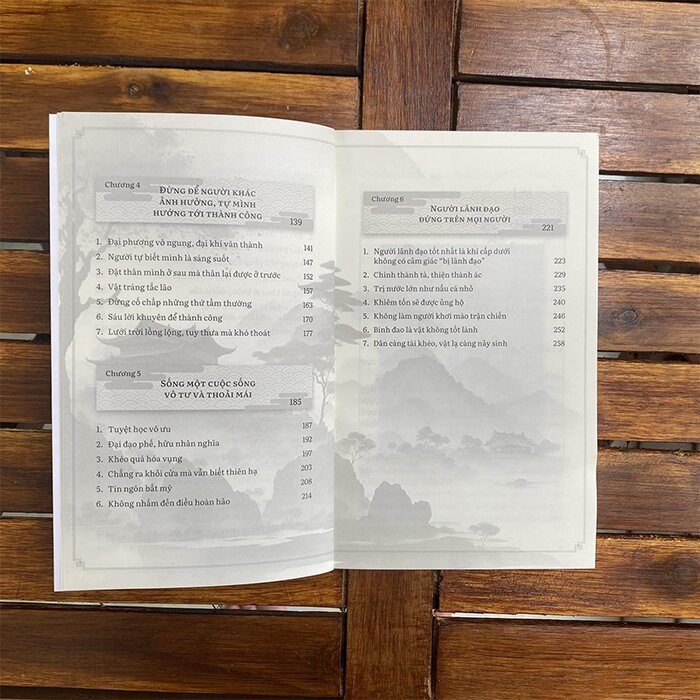 Chương 4
ĐỪNG ĐỂ NGƯỜI KHÁC
ẢNH HƯỞNG, TỰ MÌNH
HƯỚNG TỚI THÀNH CÔNG
139
1. Đại phương vô ngung, đại khí vãn thành 141
2. Người tự biết mình là sáng suốt 147
3. Đặt thân mình ở sau mà thân lại được ở trước 152
4. Vật tráng tắc lão 157
5. Đừng cố chấp những thứ tầm thường 163
6. Sáu lời khuyên để thành công 170
7. Lưới trời lồng lộng, tuy thưa mà khó thoát 177
Chương 5
SỐNG MỘT CUỘC SỐNG
VÔ TƯ VÀ THOẢI MÁI
185
1. Tuyệt học vô ưu 187
2. Đại đạo phế, hữu nhân nghĩa 192
3. Khéo quá hóa vụng 197
4. Chẳng ra khỏi cửa mà vẫn biết thiên hạ 203
5. Tín ngôn bất mỹ 208
6. Không nhắm đến điều hoàn hảo 214
Chương 6
NGƯỜI LÃNH ĐẠO
ĐỨNG TRÊN MỌI NGƯỜI
221
1. Người lãnh đạo tốt nhất là khi cấp dưới
không có cảm giác "bị lãnh đạo" 223
2. Chính thành tà, thiện thành ác 229
3. Trị nước lớn như nấu cá nhỏ 235
4. Khiêm tốn sẽ được ủng hộ 240
5. Không làm người khơi mào trận chiến 246
6. Binh đao là vật không tốt lành 252
7. Dân càng tài khéo, vật lạ càng nảy sinh 258